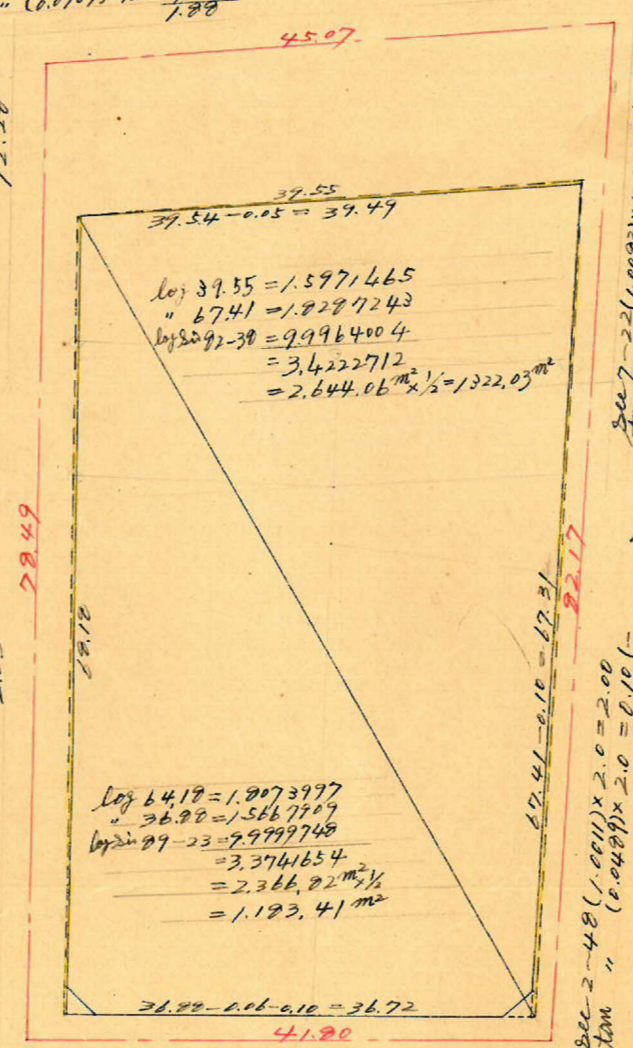 1.88
45.07
39.55
39.54-0.05 = 39.49
log 39.55 = 1.5971465
" 67.41 = 1.8287243
log sin 82-38 = 9.9964004
= 3.4222712
= 2.644.06 m² x ½ = 1322.03 m²
78.49
64.18
82.17
67.41-0.10 = 67.31
log 64.18 = 1.8073997
" 36.88 = 1.5667909
log sin 89-23 = 9.9999748
= 3.3741654
= 2.366.82 m² x ½
= 1.183.41 m²
36.88-0.06-0.10 = 36.72
41.80
sec 7-22
sec 2-48 (1.0011) x 2.0 = 2.00
tan " (0.0489) x 2.0 = 0.10 (-